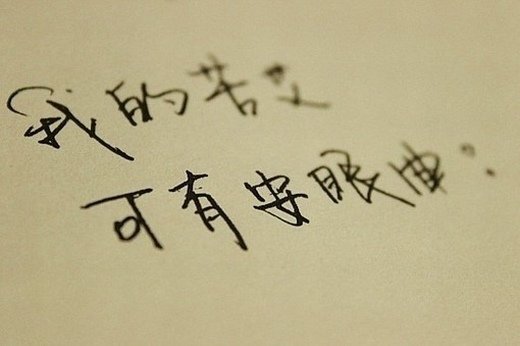 我的苦艾
可有安眠曲?